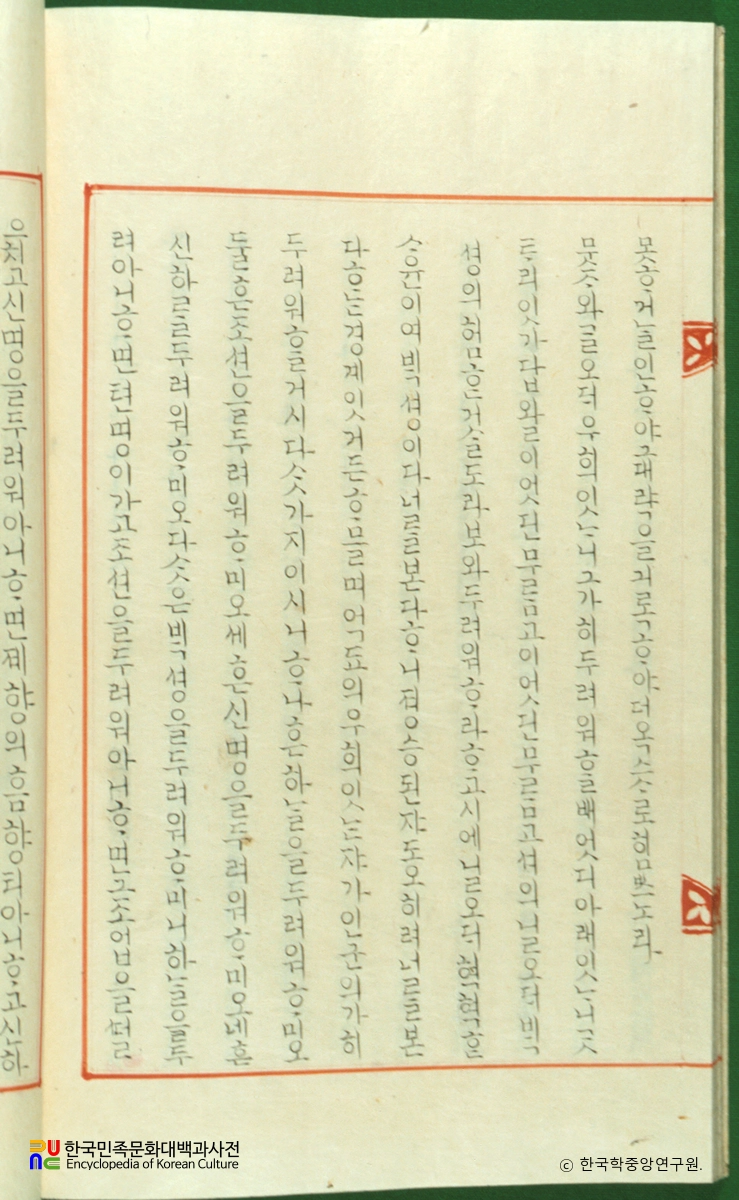 못ᄒᆞ거ᄂᆞᆯ인ᄒᆞ야그대략을긔록ᄒᆞ야더옥스ᄉᆞ로힘ᄡᅳ노라
뭇ᄌᆞ와ᄀᆞᆯ오ᄃᆡ우희잇ᄂᆞ니그가히두려워ᄒᆞᆯ배엇디아래잇ᄂᆞ니ᄀᆞᆺ
ᄐᆞ리잇가답왈이엇딘무ᄅᆞᆷ고이엇딘무ᄅᆞᆷ고셔의닐오ᄃᆡᄇᆡᆨ
셩의험ᄒᆞᆫ거ᄉᆞᆯ도라보와두려워ᄒᆞ라ᄒᆞ고시에닐오ᄃᆡ혁혁ᄒᆞᆫ
ᄉᆞ윤이여ᄇᆡᆨ셩이다너ᄅᆞᆯ본다ᄒᆞ니졍승된쟈도오히려너ᄅᆞᆯ본
다ᄒᆞᄂᆞᆫ경계잇거든ᄒᆞ믈며억됴의우희잇ᄂᆞᆫ쟈가인군의가히
두려워ᄒᆞᆯ거시다ᄉᆞᆺ가지이시니ᄒᆞ나흔하ᄂᆞᆯ을두려워ᄒᆞ미오
둘흔조션을두려워ᄒᆞ미오세흔신명을두려워ᄒᆞ미오네흔
신하ᄅᆞᆯ두려워ᄒᆞ미오다ᄉᆞᆺ은ᄇᆡᆨ셩을두려워ᄒᆞ미니하ᄂᆞᆯ을두
려아니ᄒᆞ면텬명이가고조션을두려워아니ᄒᆞ면그조업을
치고신명을두려워아니ᄒᆞ면졔향의흠향티아니ᄒᆞ고신하
한국민족문화대백과사전
Encyclopedia of Korean Culture
ⓒ 한국학중앙연구원.